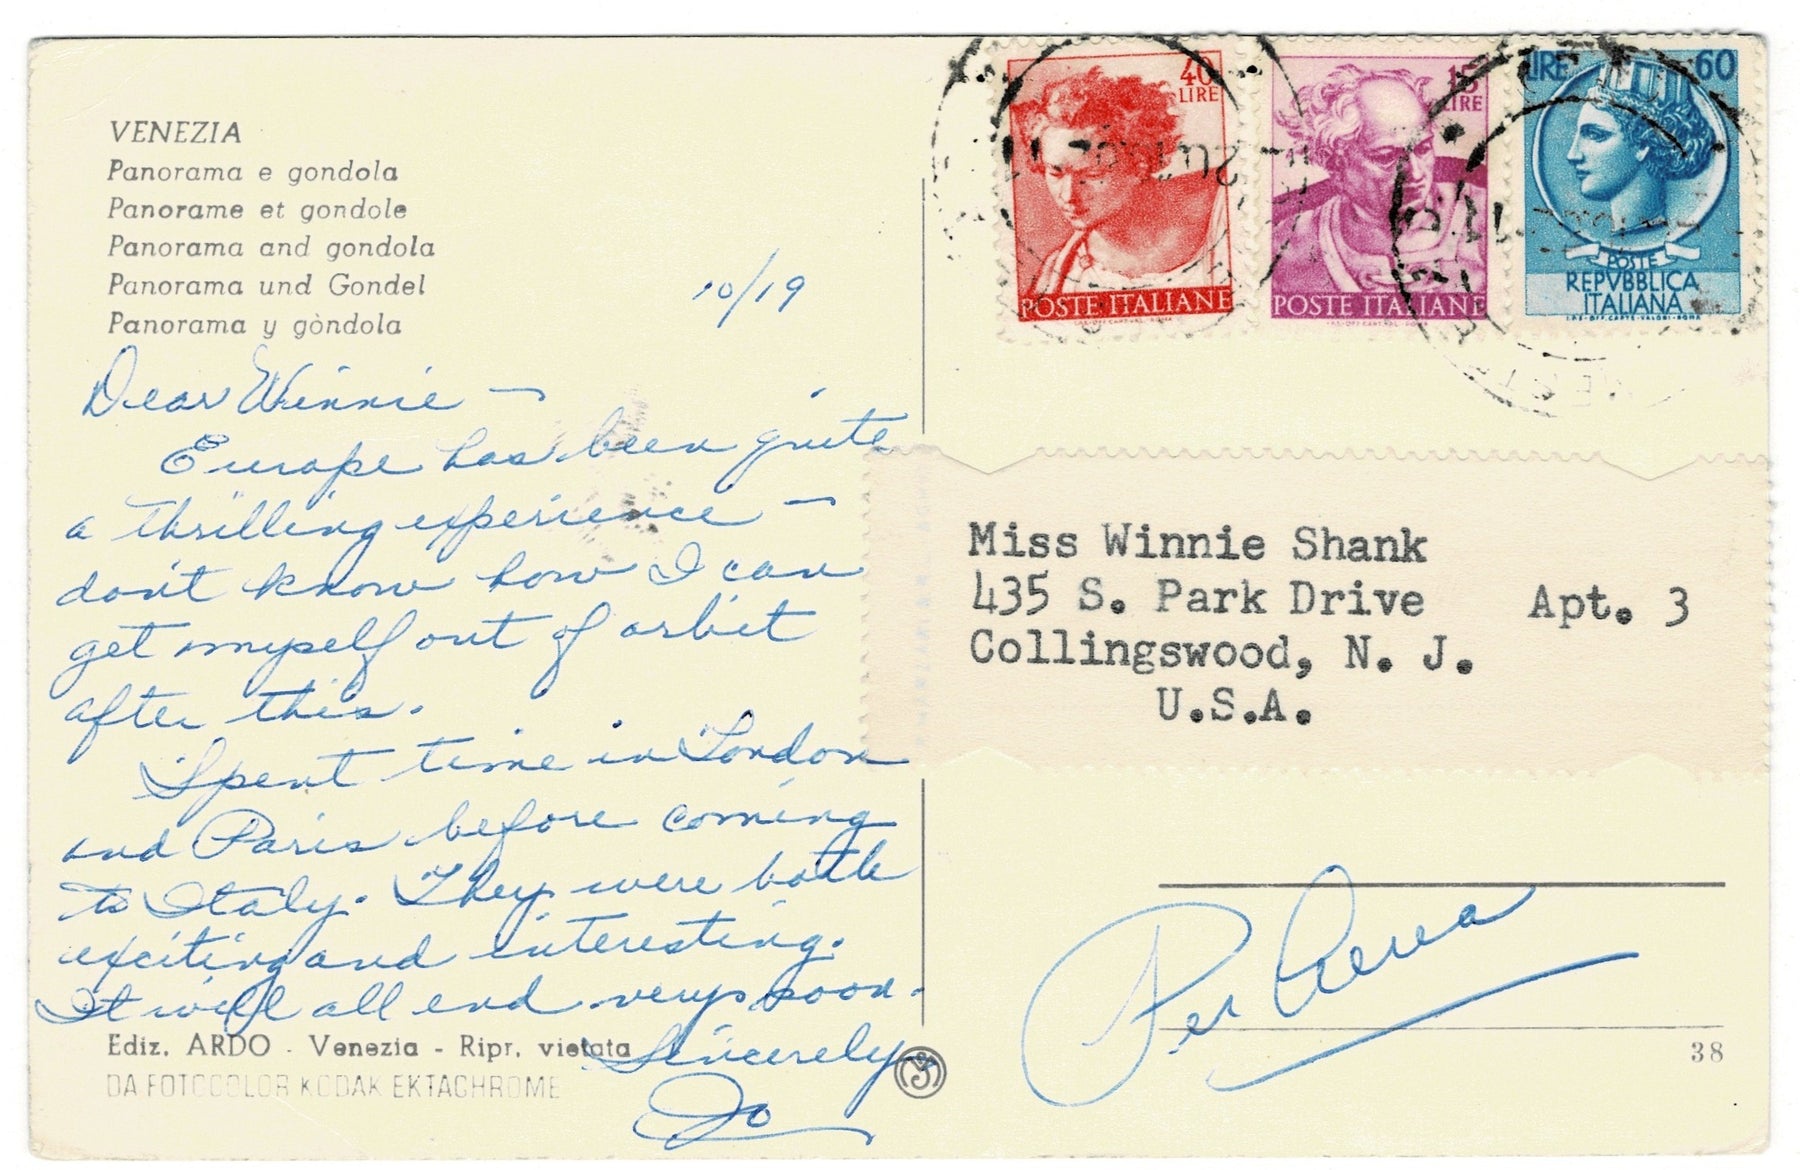 VENEZIA
Panorama e gondola
Panorame et gondole
Panorama and gondola
Panorama und Gondel
Panorama y gòndola
10/19
Dear Winnie —
Europe has been quite
a thrilling experience —
don't know how I can
get myself out of orbit
after this.
Spent time in London
and Paris before coming
to Italy. They were both
exciting and interesting.
It will all end very soon.
Sincerely,
Jo
Ediz. ARDO - Venezia - Ripr. vietata
DA FOTOCOLOR KODAK EKTACHROME
40
LIRE
POSTE ITALIANE
I.P.S.-OFF.CARTVAL.-ROMA
15
LIRE
POSTE ITALIANE
I.P.S.-OFF.CARTVAL.-ROMA
LIRE 60
POSTE
REPVBBLICA
ITALIANA
I.P.S.-OFF.CARTE-VALORI-ROMA
Miss Winnie Shank
435 S. Park Drive Apt. 3
Collingswood, N. J.
U.S.A.
Per Aerea
38